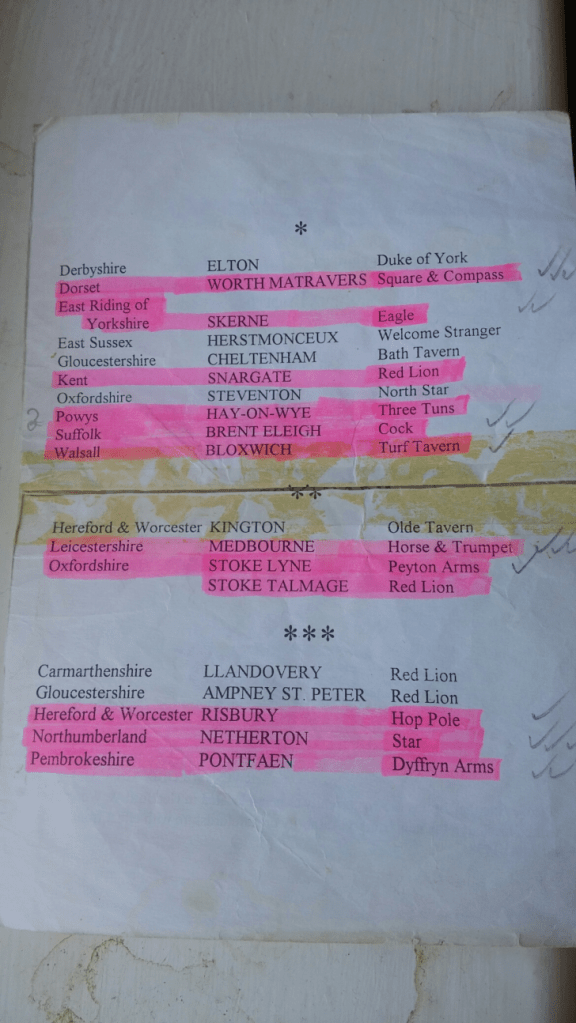 *
Derbyshire ELTON Duke of York
Dorset WORTH MATRAVERS Square & Compass
East Riding of
Yorkshire SKERNE Eagle
East Sussex HERSTMONCEUX Welcome Stranger
Gloucestershire CHELTENHAM Bath Tavern
Kent SNARGATE Red Lion
Oxfordshire STEVENTON North Star
Powys HAY-ON-WYE Three Tuns
Suffolk BRENT ELEIGH Cock
Walsall BLOXWICH Turf Tavern
**
Hereford & Worcester KINGTON Olde Tavern
Leicestershire MEDBOURNE Horse & Trumpet
Oxfordshire STOKE LYNE Peyton Arms
STOKE TALMAGE Red Lion
***
Carmarthenshire LLANDOVERY Red Lion
Gloucestershire AMPNEY ST. PETER Red Lion
Hereford & Worcester RISBURY Hop Pole
Northumberland NETHERTON Star
Pembrokeshire PONTFAEN Dyffryn Arms